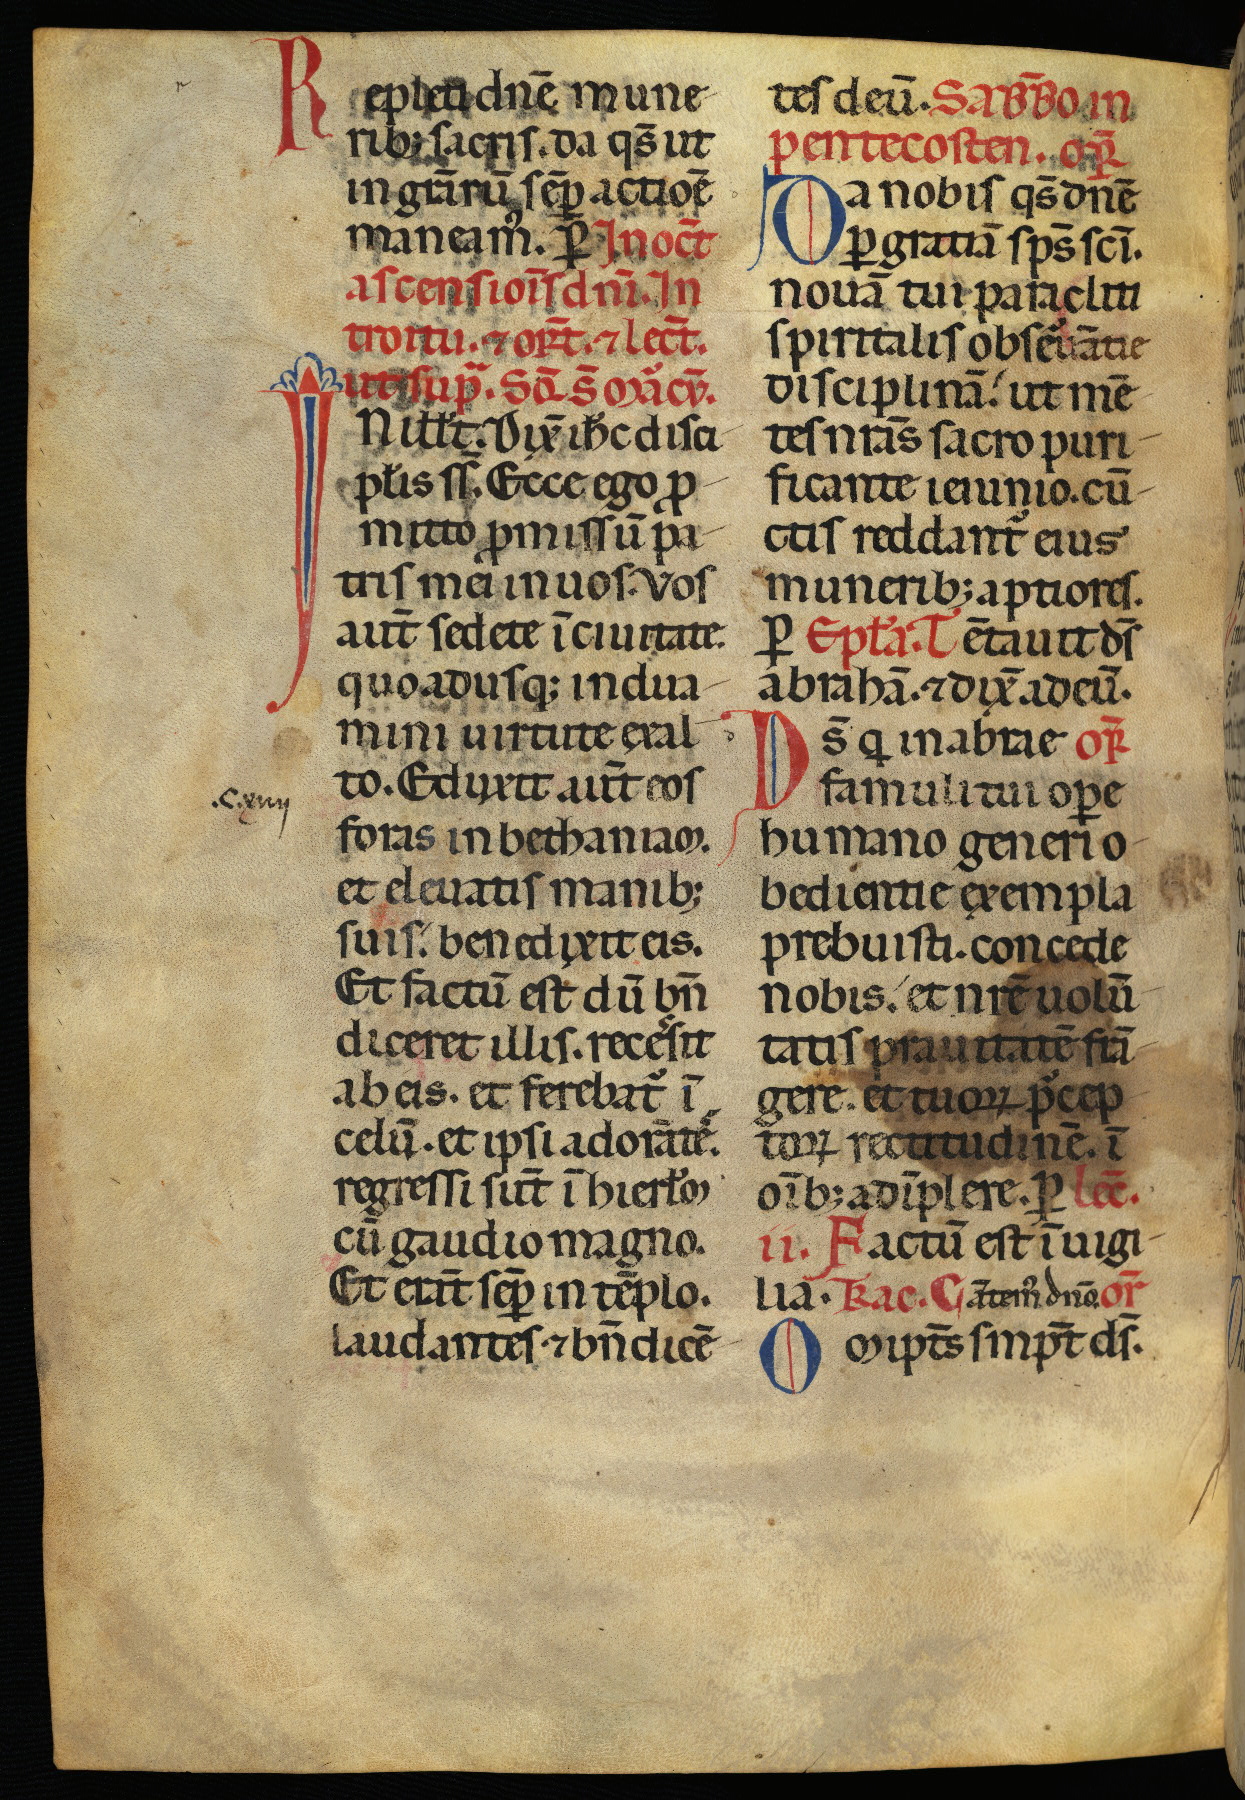 Repleti dnē mune-
rib; sacris. da qs̄ ut
in grārū sēp actiōē
maneam᷒. ꝑ In oct̄
ascensiōis dnī. In
troitu. ⁊ orāt. ⁊ lect̄.
ut supᷓ. Scd̄. s̄ marcū.
IN ill̄ t̄. Dix̄ ih̄c disci-
pl̄is ss̄. Ecce ego ꝓ-
mitto ꝓmissū pa-
tris mei in uos. Vos
aut̄ sedete ī ciuitate.
quo adusq; indua-
mini uirtute ex al-
to. Eduxit aut̄ eos
foras in bethaniam.
et eleuatis manib;
suis. benedixit eis.
Et factū est dū bn̄
diceret illis. recessit
ab eis. et ferebat᷑ ī
celū. et ipsi adorātes.
regressi sūt ī hierl̄m
cū gaudio magno.
Et erāt sēp in tēplo.
laudantes ⁊ bn̄dicē-
.c.xiiii
tes deū. Sabb̄o in
pentecosten. or̄
Da nobis qs̄ dnē
ꝑ gratiā sps̄ scī.
nouā tui paracliti
spiritalis obseruātie
disciplinā. ut mē-
tes nrās sacro puri-
ficante ieiunio. cū-
ctis reddant᷑ eius
munerib; aptiores.
ꝑ Epl̄a. Tētauit ds̄
abrahā. ⁊ dix̄ ad eū.
Ds̄ q in abrae or̄
famuli tui oꝑe
humano generi o-
bedientie exempla
prebuisti. concede
nobis. et nrē uolū-
tatis prauitatē frā-
gere. et tuoꝝ p̄cep
toꝝ rectitudinē. ī
oīb; adīplere. ꝑ lec̄.
ii. Factū est ī uigi-
lia. Rac. Cātem᷒ dnō. or̄
Omīpt̄s smpt̄ ds̄.